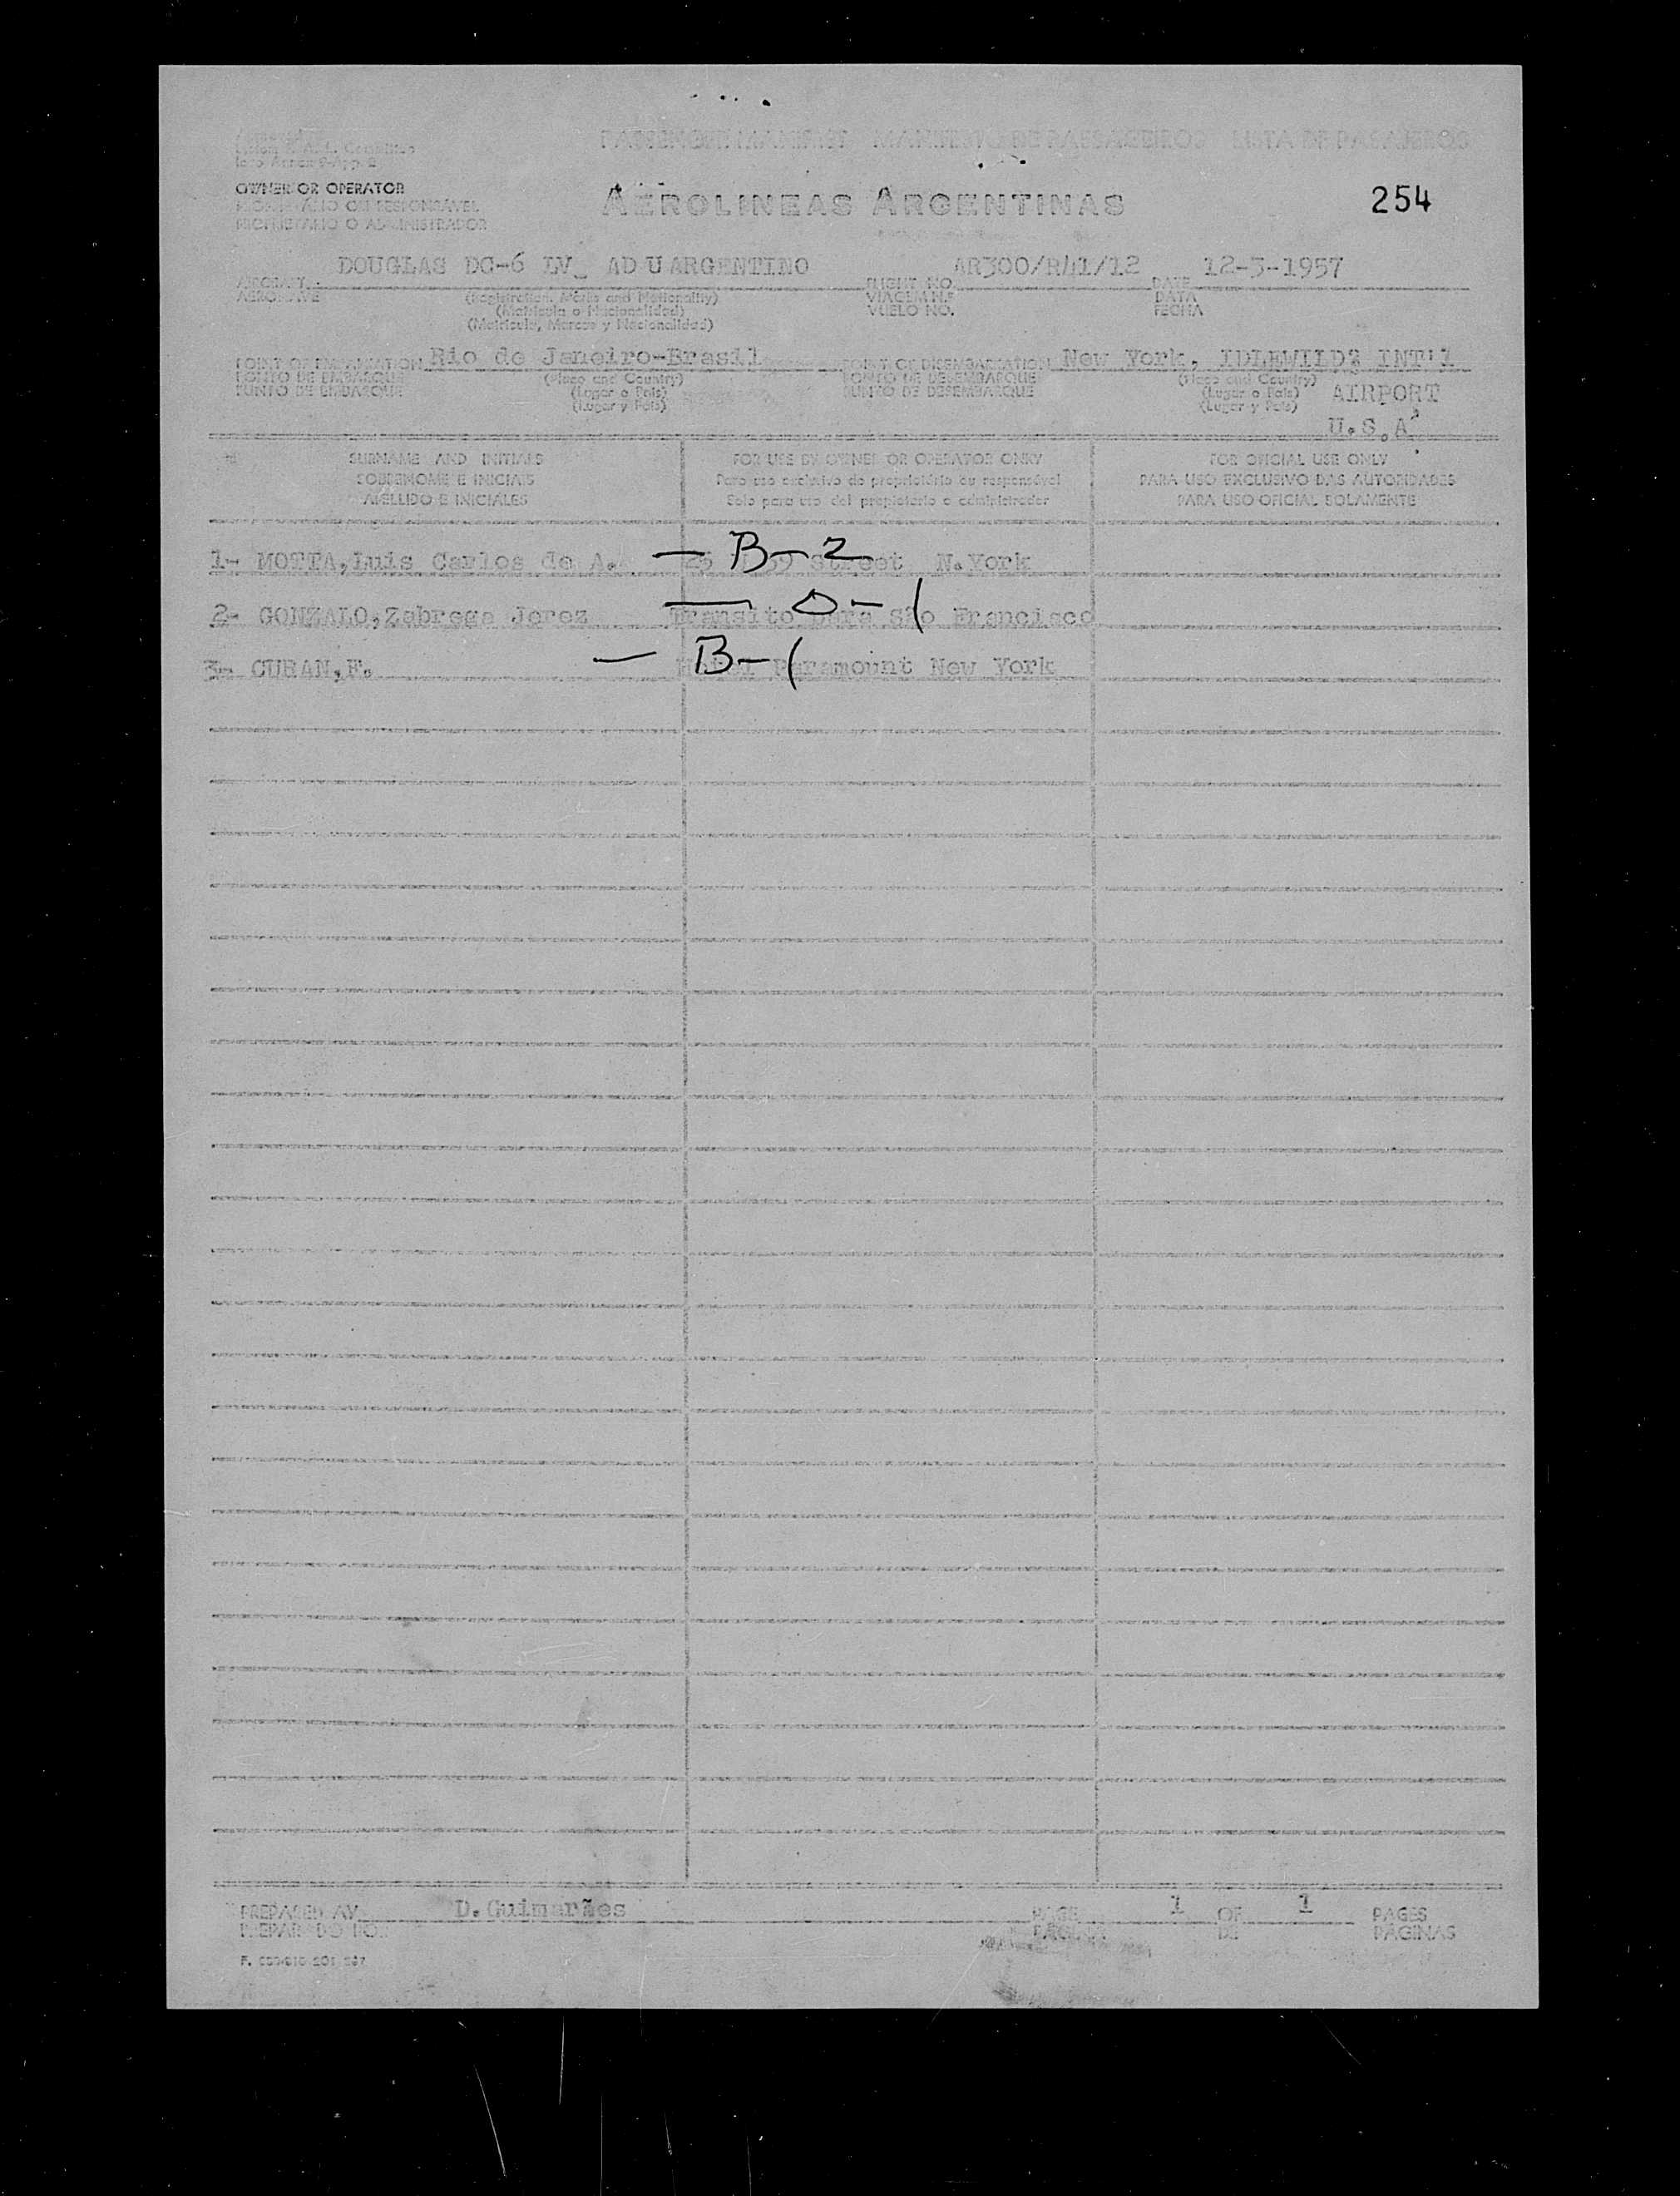 PASSENGER MANIFEST MANIFESTO DE PASSAGEIROS LISTA DE PASAJEROS
OWNER OR OPERATOR
AEROLINEAS ARGENTINAS
254
PROPIETARIO O ADMINISTRADOR
DOUGLAS DC-6 LV_ AD U ARGENTINO AR300/R41/12 12-3-1957
AIRCRAFT FLIGHT NO. DATE
AERONAVE (Registration, Marks and Nationality) VIAGEM N.º DATA
(Matricula o Nacionalidad) VUELO NO. FECHA
(Matricula, Marcas y Nacionalidad)
POINT OF EMBARKATION Rio de Janeiro-Brasil POINT OF DISEMBARKATION New York, IDLEWILD? INT'L
PONTO DE EMBARQUE (Place and Country) PONTO DE DESEMBARQUE (Place and Country) AIRPORT
PUNTO DE EMBARQUE (Lugar o Pais) PUNTO DE DESEMBARQUE (Lugar o Pais)
(Lugar y País) (Lugar y País) U.S.A
SURNAME AND INITIALS FOR USE BY OWNER OR OPERATOR ONLY FOR OFICIAL USE ONLY
SOBRENOME E INICIAIS Para uso exclusivo do proprietário ou responsável PARA USO EXCLUSIVO DAS AUTORIDADES
APELLIDO E INICIALES Solo para uso del propietario o administrador PARA USO OFICIAL SOLAMENTE
1- MOTTA,Luis Carlos de A. — B-2 Street N.York
2- GONZALO,Zabrega Jerez — O-1 Transito para São Francisco
3- CURAN,F. — B-1 Hotel Paramount New York
PREPARED BY D.Guimarães PAGE 1 OF 1 PAGES
PREPARADO POR PÁGINA DE PÁGINAS